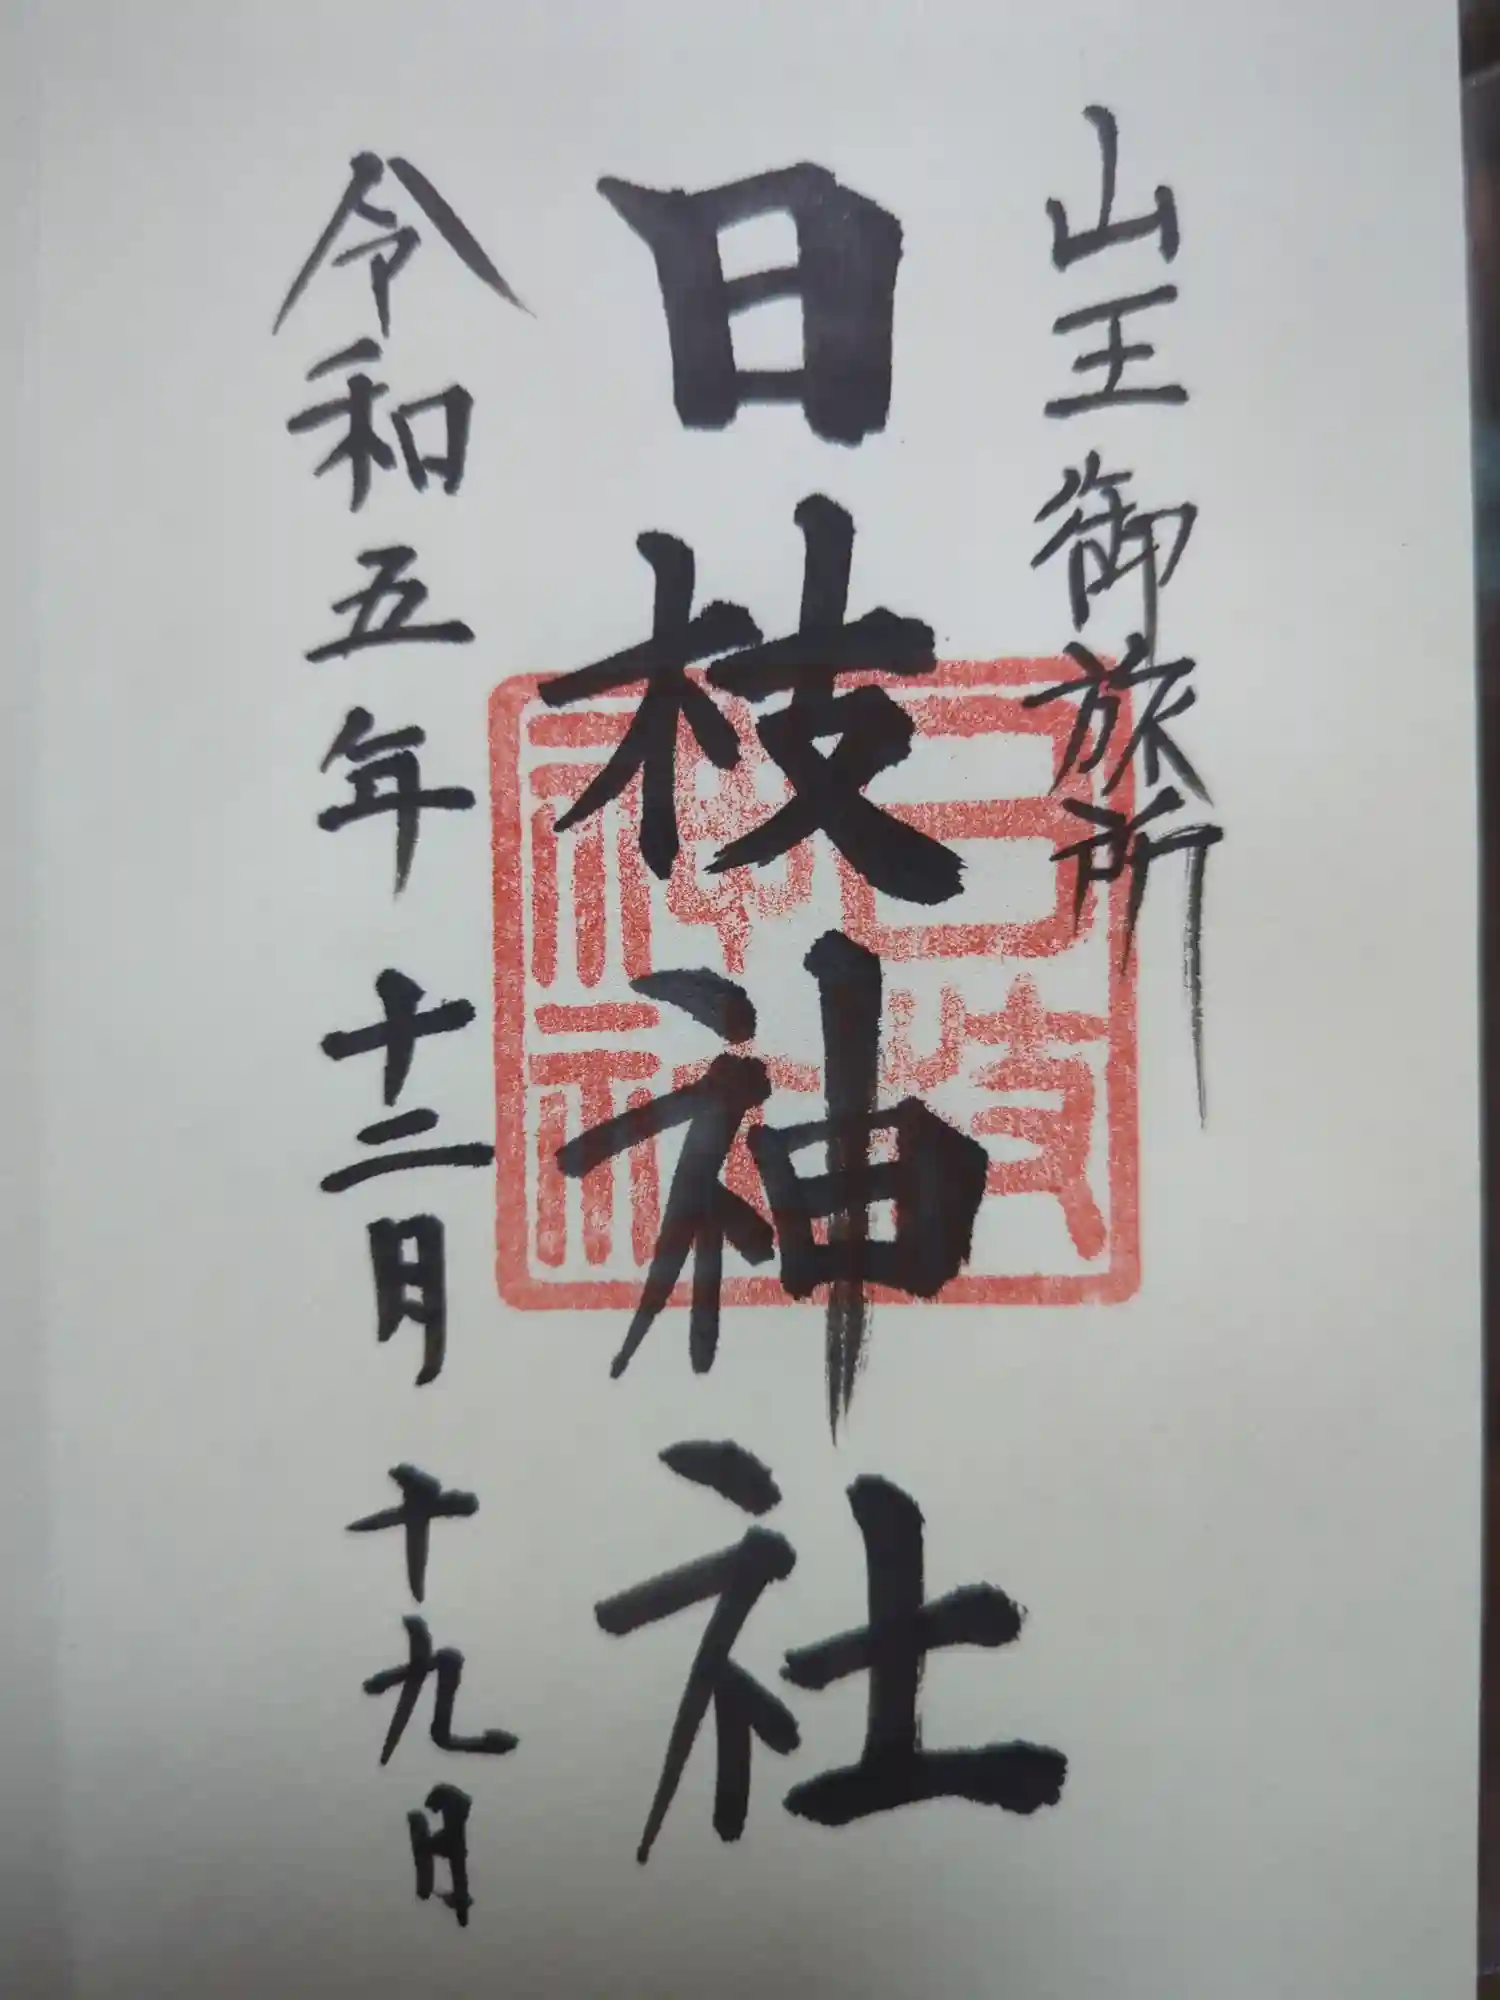 山王御旅所
日枝神社
日枝神社
令和五年十二月十九日